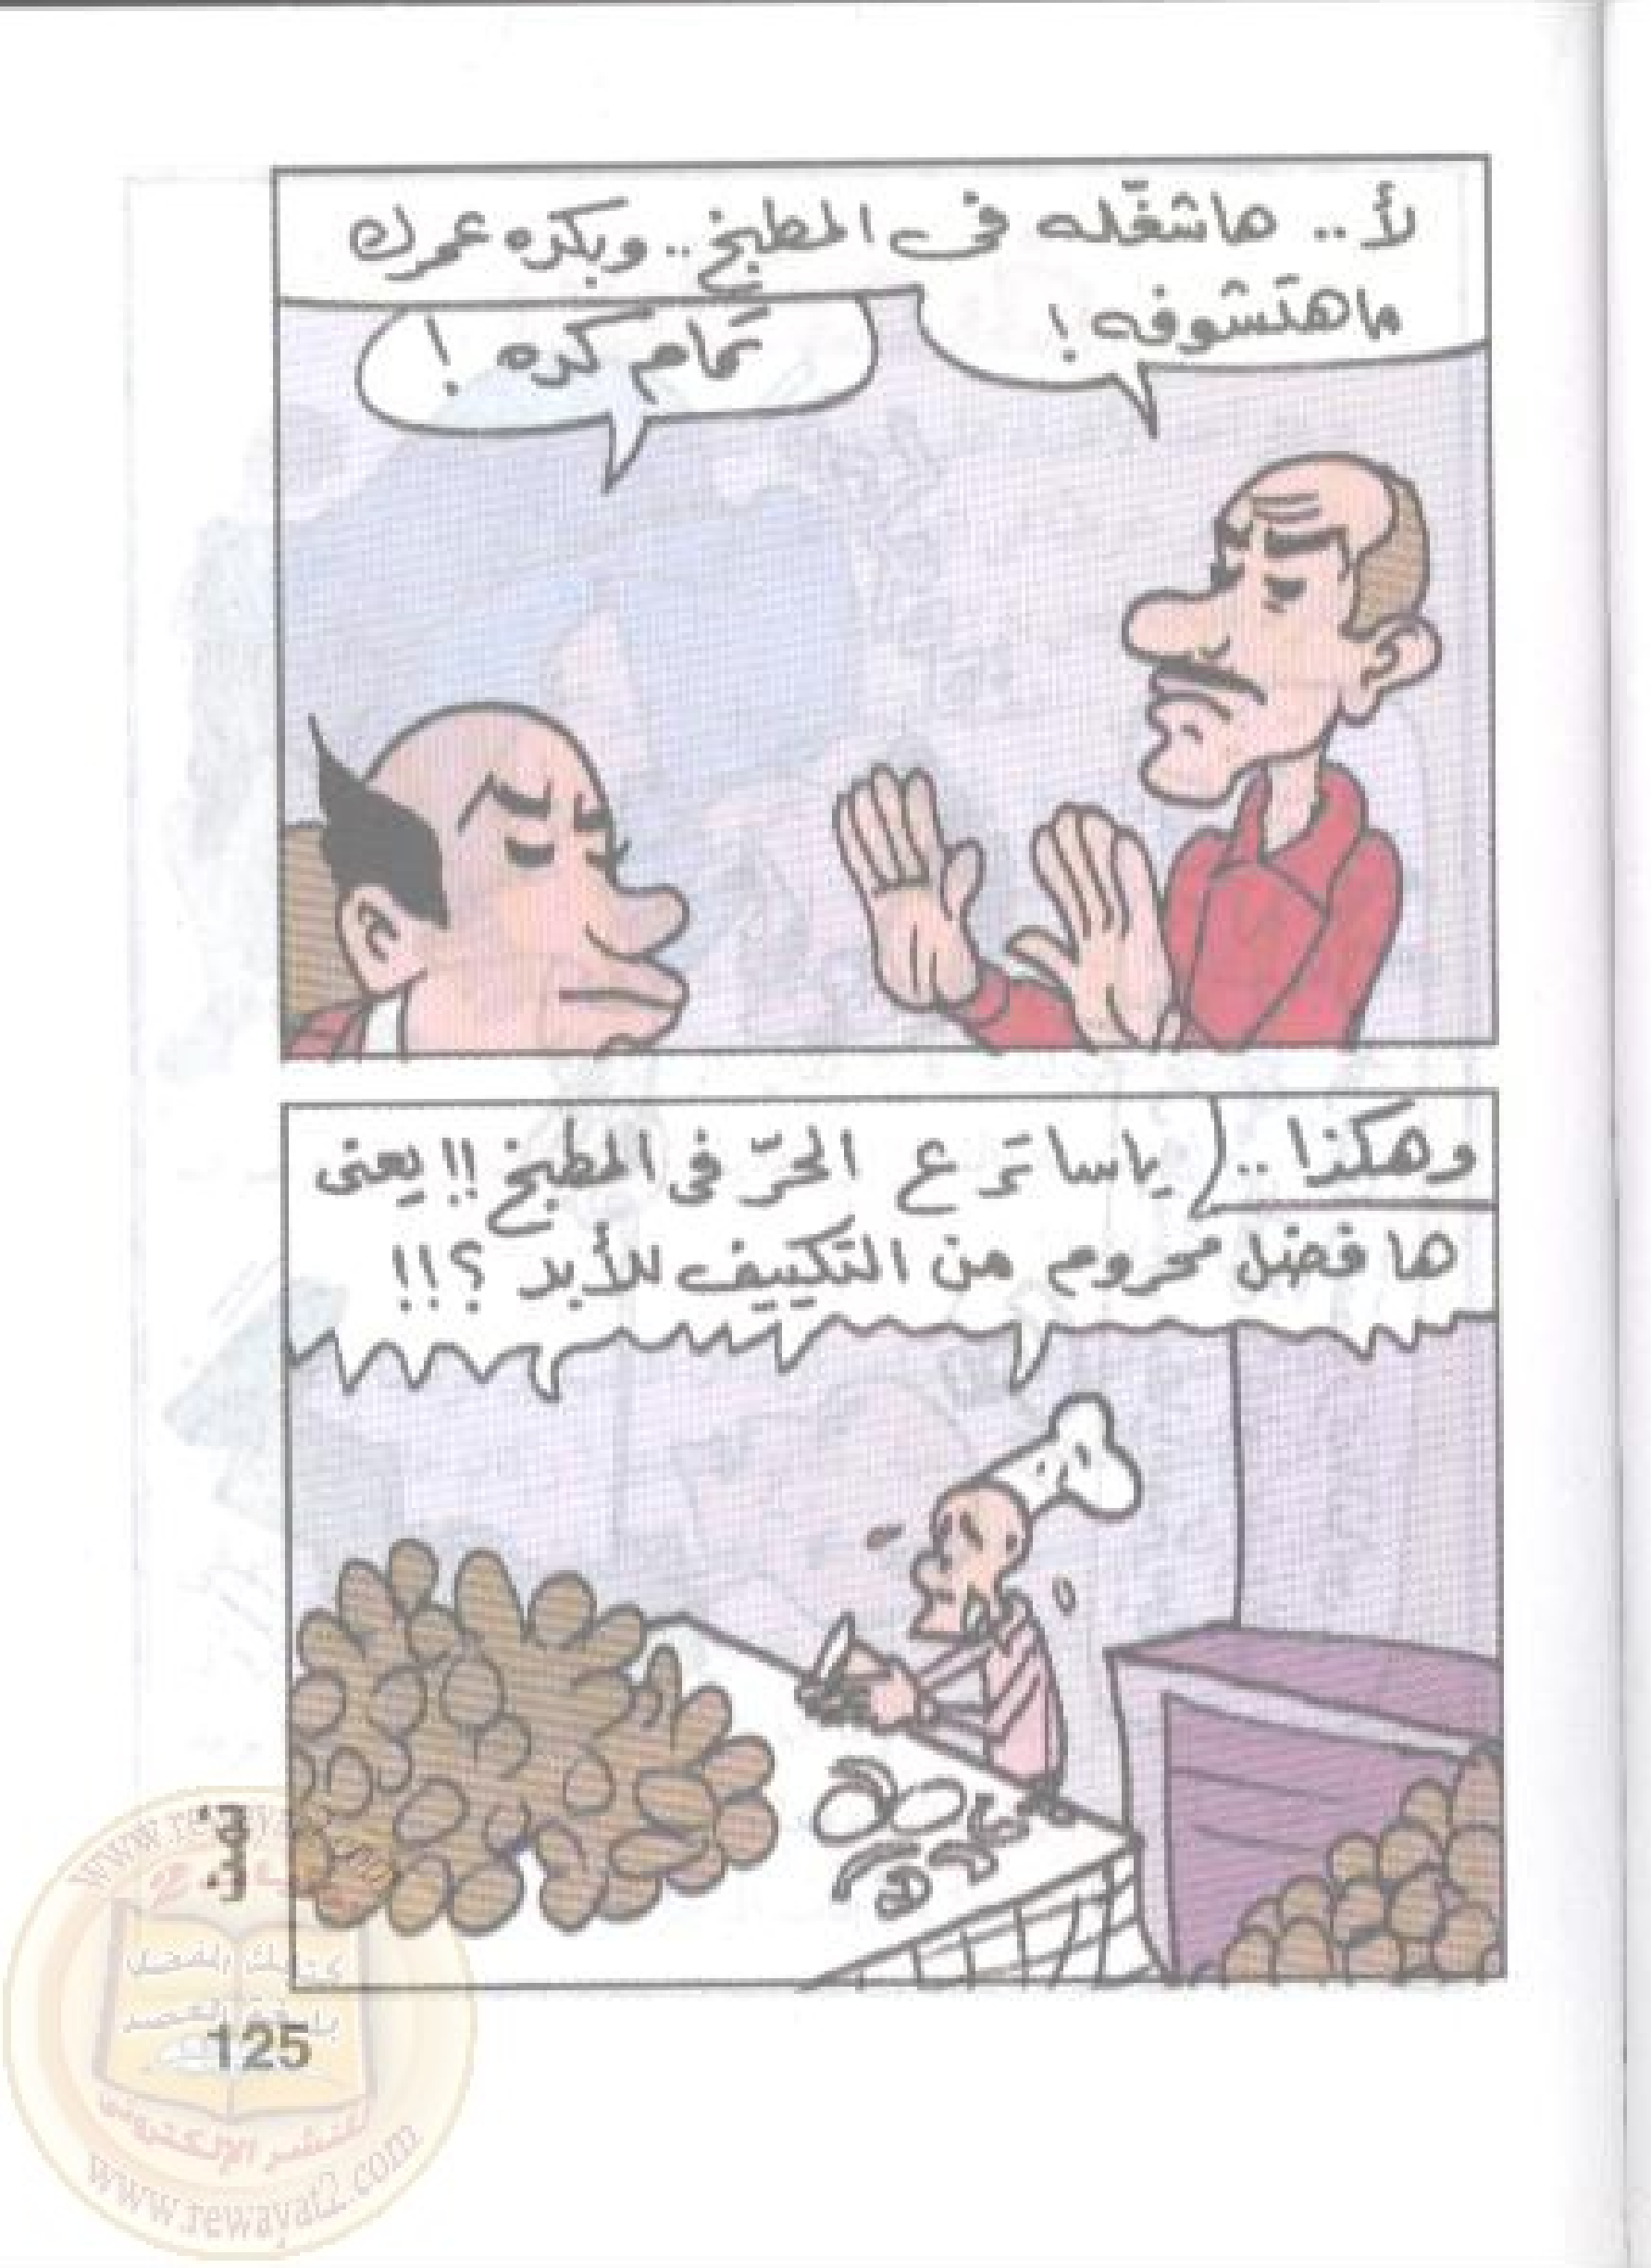 لأ.. هاشغّله فى المطبخ.. وبكره عمرك
ماهتشوفه !
تمام كده !
وهكذا..
ياساتر ع الحرّ فى المطبخ !! يعنى
هافضل محروم من التكييف للأبد ؟!!
125
www.rewayat2.com